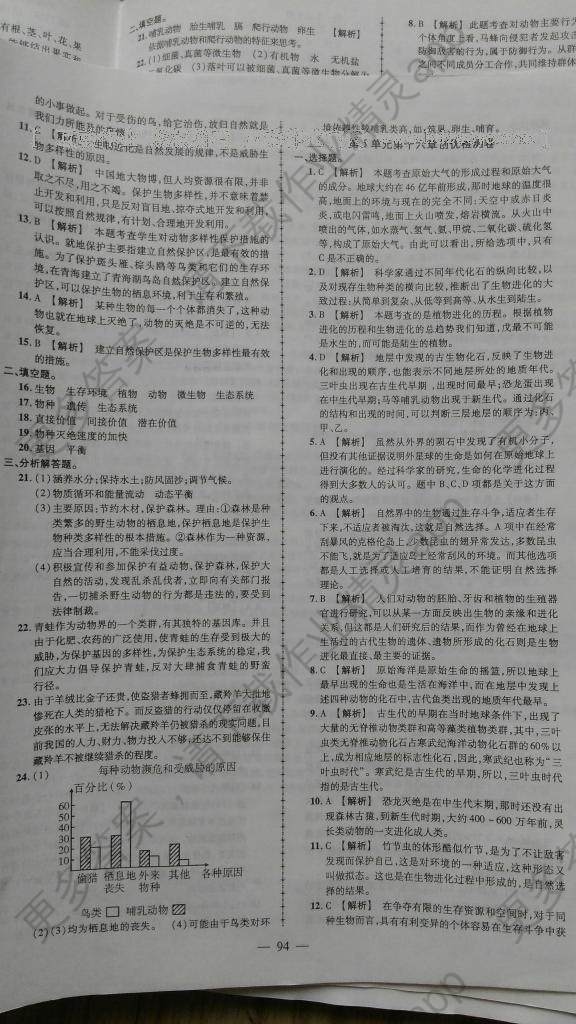 有根、茎、叶、花、果
二、填空题。
21. 哺乳动物 胎生哺乳 膈 爬行动物 卵生 【解析】
依据哺乳动物和爬行动物的特征来思考。
22. (1)细菌、真菌等微生物 (2)有机物 水 无机盐
二氧化碳 (3)落叶可以被细菌、真菌等微生物分解
8. B 【解析】 此题考查对动物主要行为
个体角度上看,马蜂向侵犯者发起攻击
防御敌害的行为,属于防御行为。从群
之间不同成员分工合作,共同维持群体
的小事做起。对于受伤的鸟,给它治伤,放归自然就是
我们力所能及的
11.
物多样性的原因。
12. D 【解析】 中国地大物博,但人均资源很有限,并非
取之不尽,用之不竭。保护生物多样性,并不意味着禁
止开发和利用,只是反对盲目地、掠夺式地开发和利用,
可以按照自然规律,有计划、合理地开发利用。
13. B 【解析】 本题考查学生对动物多样性保护措施的
认识。就地保护主要指建立自然保护区,是最有效的措
施。为了保护斑头雁、棕头鸥等鸟类和它们的生存环
境,在青海建立了青海湖鸟岛自然保护区。建立自然保
护区,可以保护生物的栖息环境,利于生存和繁殖。
14. A 【解析】 某种生物的每一个个体都消失了,这种动
物也就在地球上灭绝了,动物的灭绝是不可逆的,无法
恢复。
15. B 【解析】 建立自然保护区是保护生物多样性最有效
的措施。
二、填空题。
16. 生物 生存环境 植物 动物 微生物 生态系统
17. 物种 遗传 生态系统
18. 直接价值 间接价值 潜在价值
19. 物种灭绝速度的加快
20. 基因 平衡
三、分析解答题。
21. (1)涵养水分;保持水土;防风固沙;调节气候。
(2)物质循环和能量流动 动态平衡
(3)主要原因:节约木材,保护森林。理由:①森林是种
类繁多的野生动物的栖息地,保护栖息地是保护生
物种类多样性的根本措施。②森林作为一种资源,
应当合理利用,不能采伐过度。
(4)积极宣传和参加保护有益动物,保护森林,保护大
自然的活动,发现乱杀乱伐者,立即向有关部门报
告,一切捕杀野生动物的行为都是违法的,要受到
法律制裁。
22. 青蛙作为动物界的一个类群,有其独特的基因库。并且
由于化肥、农药的广泛使用,使青蛙的生存受到极大的
威胁,为保护基因的多样性,为保护生态系统的稳定,我
们应大力倡导保护青蛙,反对大肆捕食青蛙的野蛮
行径。
23. 由于羊绒比金子还贵,使盗猎者蜂拥而至,藏羚羊大批地
惨死在人类的猎枪下。而反盗猎的行动仅仅停留在收缴
皮张的水平上,无法解决藏羚羊仍被猎杀的现实问题,目
前我国的人力、财力、物力投入不够,还达不到能够保住
藏羚羊不被继续猎杀的程度。
24. (1) 每种动物濒危和受威胁的原因
百分比(%)
60
50
40
30
20
10
偷猎 栖息地丧失 外来物种 其他 各种原因
鸟类 哺乳动物
(2)(3)均为栖息地的丧失。 (4)可能由于鸟类对环
境依赖性较哺乳类高,如:筑巢、卵生、哺育。
一、选择题。
1. C 【解析】 本题考查原始大气的形成过程和原始大气
的成分。地球大约在46亿年前形成,那时地球的温度很
高,地面上的环境与现在的完全不同:天空中或赤日炎
炎,或电闪雷鸣,地面上火山喷发,熔岩横流。从火山中
喷出的气体,如水蒸气、氢气、氨、甲烷、二氧化碳、硫化氢
等,构成了原始大气。由此可以看出,所给选项中,只有
C是不正确的。
2. D 【解析】 科学家通过不同年代化石的纵向比较,以
及对现存生物种类的横向比较,推断出了生物进化的大
致过程:从简单到复杂、从低等到高等、从水生到陆生。
3. B 【解析】 本题考查的是植物进化的历程。根据植物
进化的历程和生物进化的总趋势我们知道,茂最不可能
是水生的,而可能是陆生的植物。
4. D 【解析】 地层中发现的古生物化石,反映了生物进
化和出现的顺序,也能表示不同地层所处的地质年代。
三叶虫出现在古生代早期,出现时间最早;恐龙蛋出现
在中生代早期;马等哺乳动物出现于新生代。通过化石
的结构和出现的时间,可以判断三层地层的顺序为:丙、
甲、乙。
5. A 【解析】 虽然从外界的陨石中发现了有机小分子,
但没有其他证据说明外星球的生命是如何在原始地球上
进行演化的。经过科学家的研究,生命的化学进化过程
得到大多数人的认可。题中B、C、D项都是关于这方面
的观点。
6. A 【解析】 自然界中的生物通过生存斗争,适应者生存
下来,不适应者被淘汰,这就是自然选择。A项中在经常
刮暴风的克格伦岛上,少数昆虫的翅异常发达,多数昆虫
不能飞,就是为了适应岛上经常刮风的环境。而其他选项
都是人工选择或人工培育的结果,不能证明自然选择
理论。
7. B 【解析】 人们对动物的胚胎、牙齿和植物的生殖器
官进行研究,可以从某一方面反映出生物的亲缘和进化
关系,但这都是人们研究后的结果,而作为曾经在地球上
生活过的古代生物的遗体、遗物所形成的化石则是生物
进化最直接、最主要的证据。
8. C 【解析】 原始海洋是原始生命的摇篮,所以地球上
最早出现的生命也是生活在海洋中,而在地层中发现上
述四种动物的化石中,古代鱼类出现的地质年代最早。
9. A 【解析】 古生代的早期在当时地球条件下,出现了
大量的无脊椎动物类群和高等藻类植物类群,其中,三叶
虫类无脊椎动物化石占寒武纪海洋动物化石群的60%以
上,成为相应地层的标志性化石,因此,寒武纪也称为“三
叶虫时代”。寒武纪是古生代的早期,所以,三叶虫时代
指的是古生代。
10. A 【解析】 恐龙灭绝是在中生代末期,那时还没有出
现森林古猿,到新生代时期,大约400~600万年前,灵
长类动物的一支进化成人类。
11. C 【解析】 竹节虫的体形酷似竹节,是为了不让敌害
发现而保护自己,这是对环境的一种适应,这种形态又
叫做拟态。这也是在生物进化过程中形成的,是自然选
择的结果。
12. C 【解析】 在争夺有限的生存资源和空间时,对于同
种生物而言,具有有利变异的个体容易在生存斗争中获
— 94 —